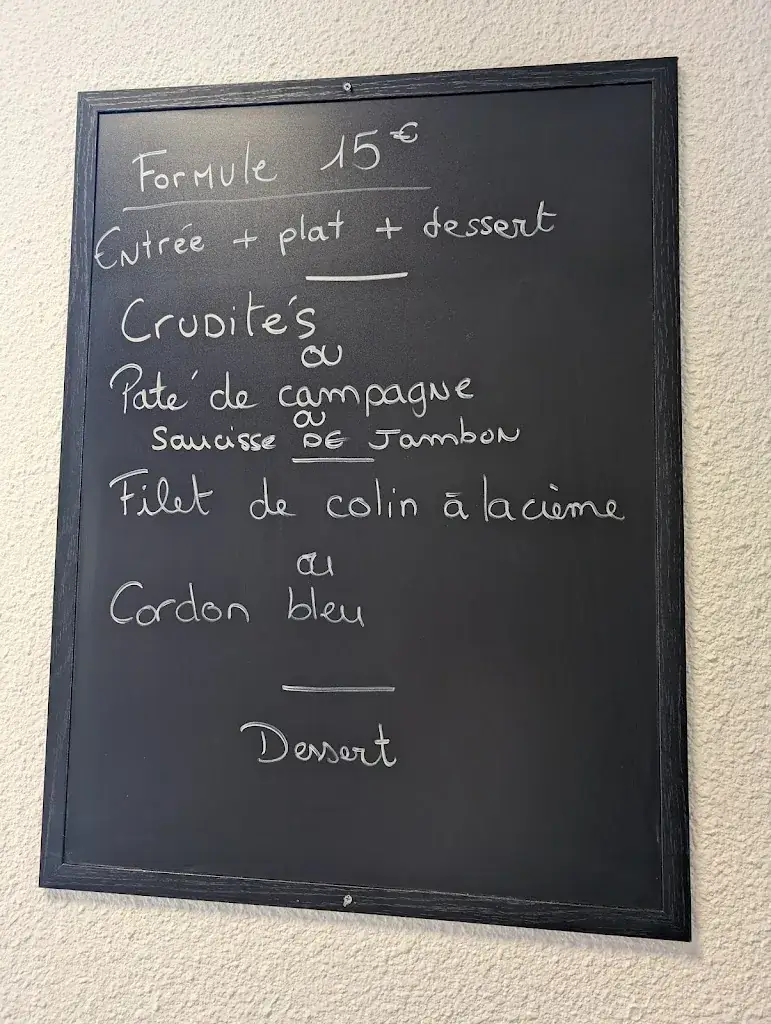 Formule 15€
Entrée + plat + dessert
Crudités
ou
Paté de campagne
ou
Saucisse DE Jambon
Filet de colin à la cième
ou
Cordon bleu
Dessert